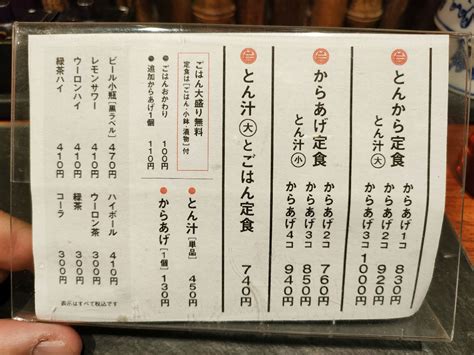 とんから定食
とん汁(大)
からあげ1コ 830円
からあげ2コ 920円
からあげ3コ 1000円
からあげ定食
とん汁(小)
からあげ2コ 760円
からあげ3コ 850円
からあげ4コ 940円
とん汁(大)とごはん定食 740円
ごはん大盛り無料
定食は[ごはん 小鉢 漬物]付
ごはんおかわり 100円
追加からあげ1個 110円
とん汁[単品] 450円
からあげ[1個] 130円
ビール小瓶[黒ラベル] 470円
レモンサワー 410円
ウーロンハイ 410円
緑茶ハイ 410円
ハイボール 410円
ウーロン茶 300円
緑茶 300円
コーラ 300円
表示はすべて税込です